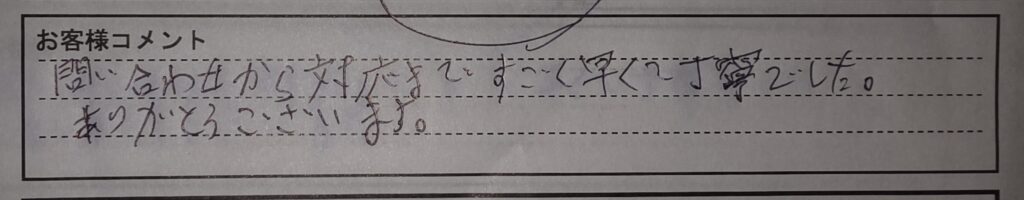 お客様コメント
問い合わせから対応まですごく早くて丁寧でした。
ありがとうございます。